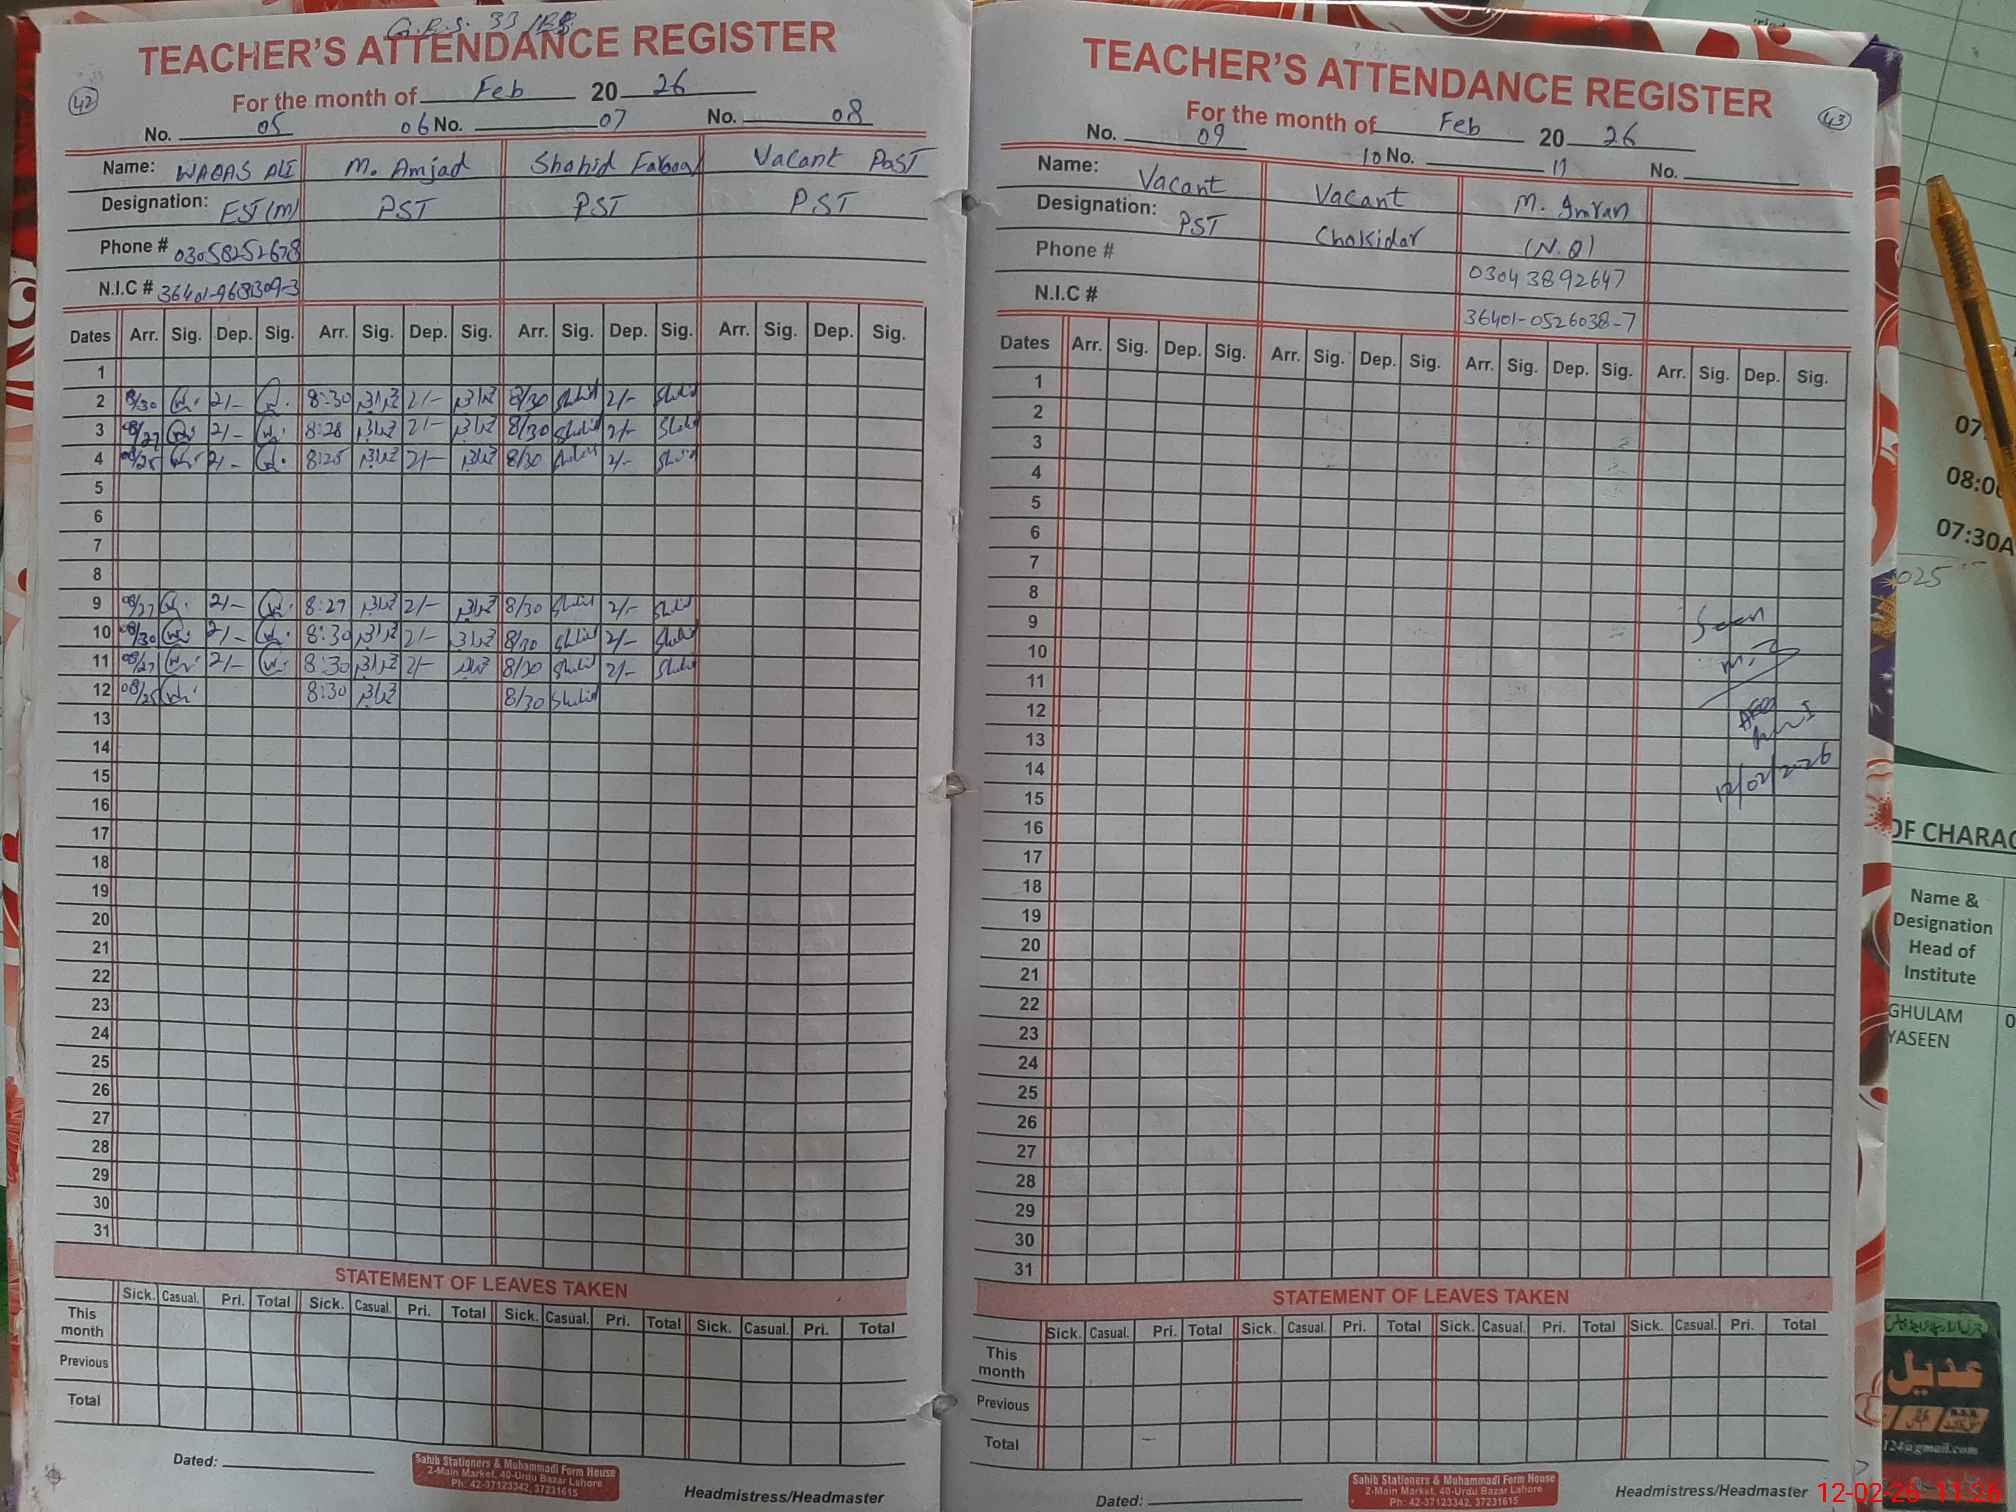 G.E.S. 33/EB
TEACHER'S ATTENDANCE REGISTER
42
For the month of Feb 20 26
No. 05 06 No. 07 No. 08
Name: WAQAS ALI M. Amjad Shahid Farooq Vacant Post
Designation: EST(M) PST PST PST
Phone # 03058252678
N.I.C # 36401-9681309-3
Dates Arr. Sig. Dep. Sig. Arr. Sig. Dep. Sig. Arr. Sig. Dep. Sig. Arr. Sig. Dep. Sig.
1
2 8/30 2/- 8:30 2/- 8/30 Shahid 2/- Shahid
3 8/27 2/- 8:28 2/- 8/30 Shahid 2/- Shahid
4 08/25 2/- 8:25 2/- 8/30 Shahid 2/- Shahid
5
6
7
8
9 08/27 2/- 8:27 2/- 8/30 Shahid 2/- Shahid
10 08/30 2/- 8:30 2/- 8/30 Shahid 2/- Shahid
11 08/27 2/- 8:30 2/- 8/30 Shahid 2/- Shahid
12 08/25 8:30 8/30 Shahid
13
14
15
16
17
18
19
20
21
22
23
24
25
26
27
28
29
30
31
STATEMENT OF LEAVES TAKEN
Sick. Casual. Pri. Total Sick. Casual. Pri. Total Sick. Casual. Pri. Total Sick. Casual. Pri. Total
This month
Previous
Total
Dated:
Sahib Stationers & Muhammadi Form House
2-Main Market, 40-Urdu Bazar Lahore
Ph: 42-37123342, 37231615
Headmistress/Headmaster
TEACHER'S ATTENDANCE REGISTER
43
For the month of Feb 20 26
No. 09 10 No. 11 No.
Name: Vacant Vacant M. Imran
Designation: PST Chokidar (N.Q)
Phone # 03043892647
N.I.C # 36401-0526038-7
Dates Arr. Sig. Dep. Sig. Arr. Sig. Dep. Sig. Arr. Sig. Dep. Sig. Arr. Sig. Dep. Sig.
1
2
3
4
5
6
7
8
9
10
11
12
13
14
15
16
17
18
19
20
21
22
23
24
25
26
27
28
29
30
31
Seen
AEO
12/02/2026
STATEMENT OF LEAVES TAKEN
Sick. Casual. Pri. Total Sick. Casual. Pri. Total Sick. Casual. Pri. Total Sick. Casual. Pri. Total
This month
Previous
Total
Dated:
Sahib Stationers & Muhammadi Form House
2-Main Market, 40-Urdu Bazar Lahore
Ph: 42-37123342, 37231615
Headmistress/Headmaster
07:30A
OF CHARAC
Name &
Designation
Head of
Institute
GHULAM
YASEEN
عدیل
124@gmail.com
12-02-26 11:26